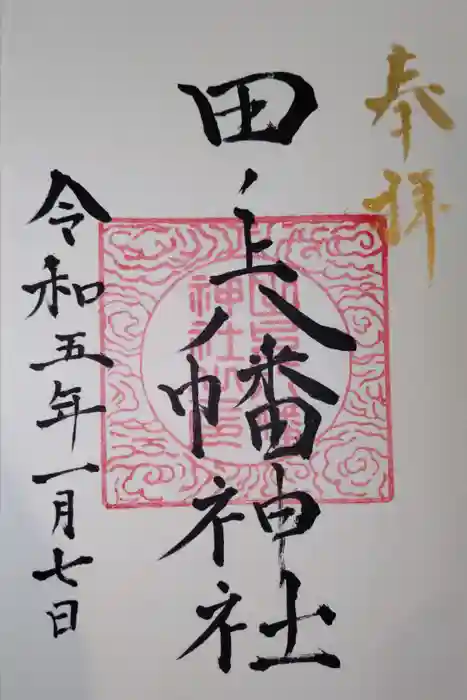 奉拝
田ノ上八幡神社
令和五年一月七日